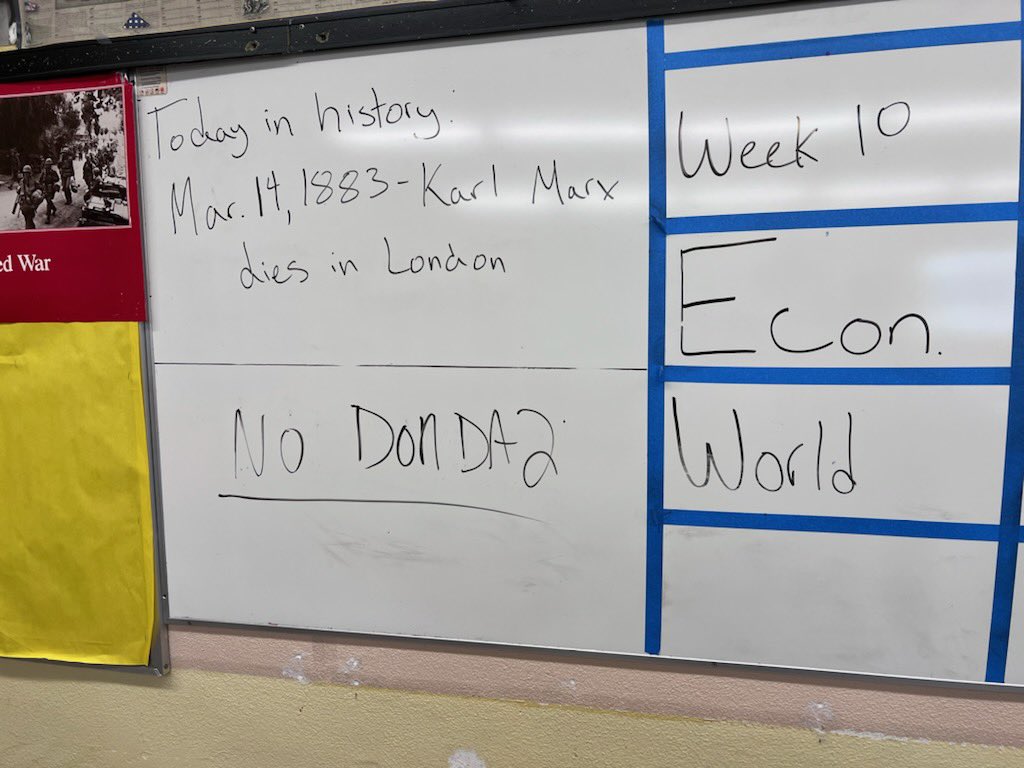 Today in history:
Mar. 14, 1883 - Karl Marx
dies in London
No DonDA2
ed War
Week 10
Econ.
World